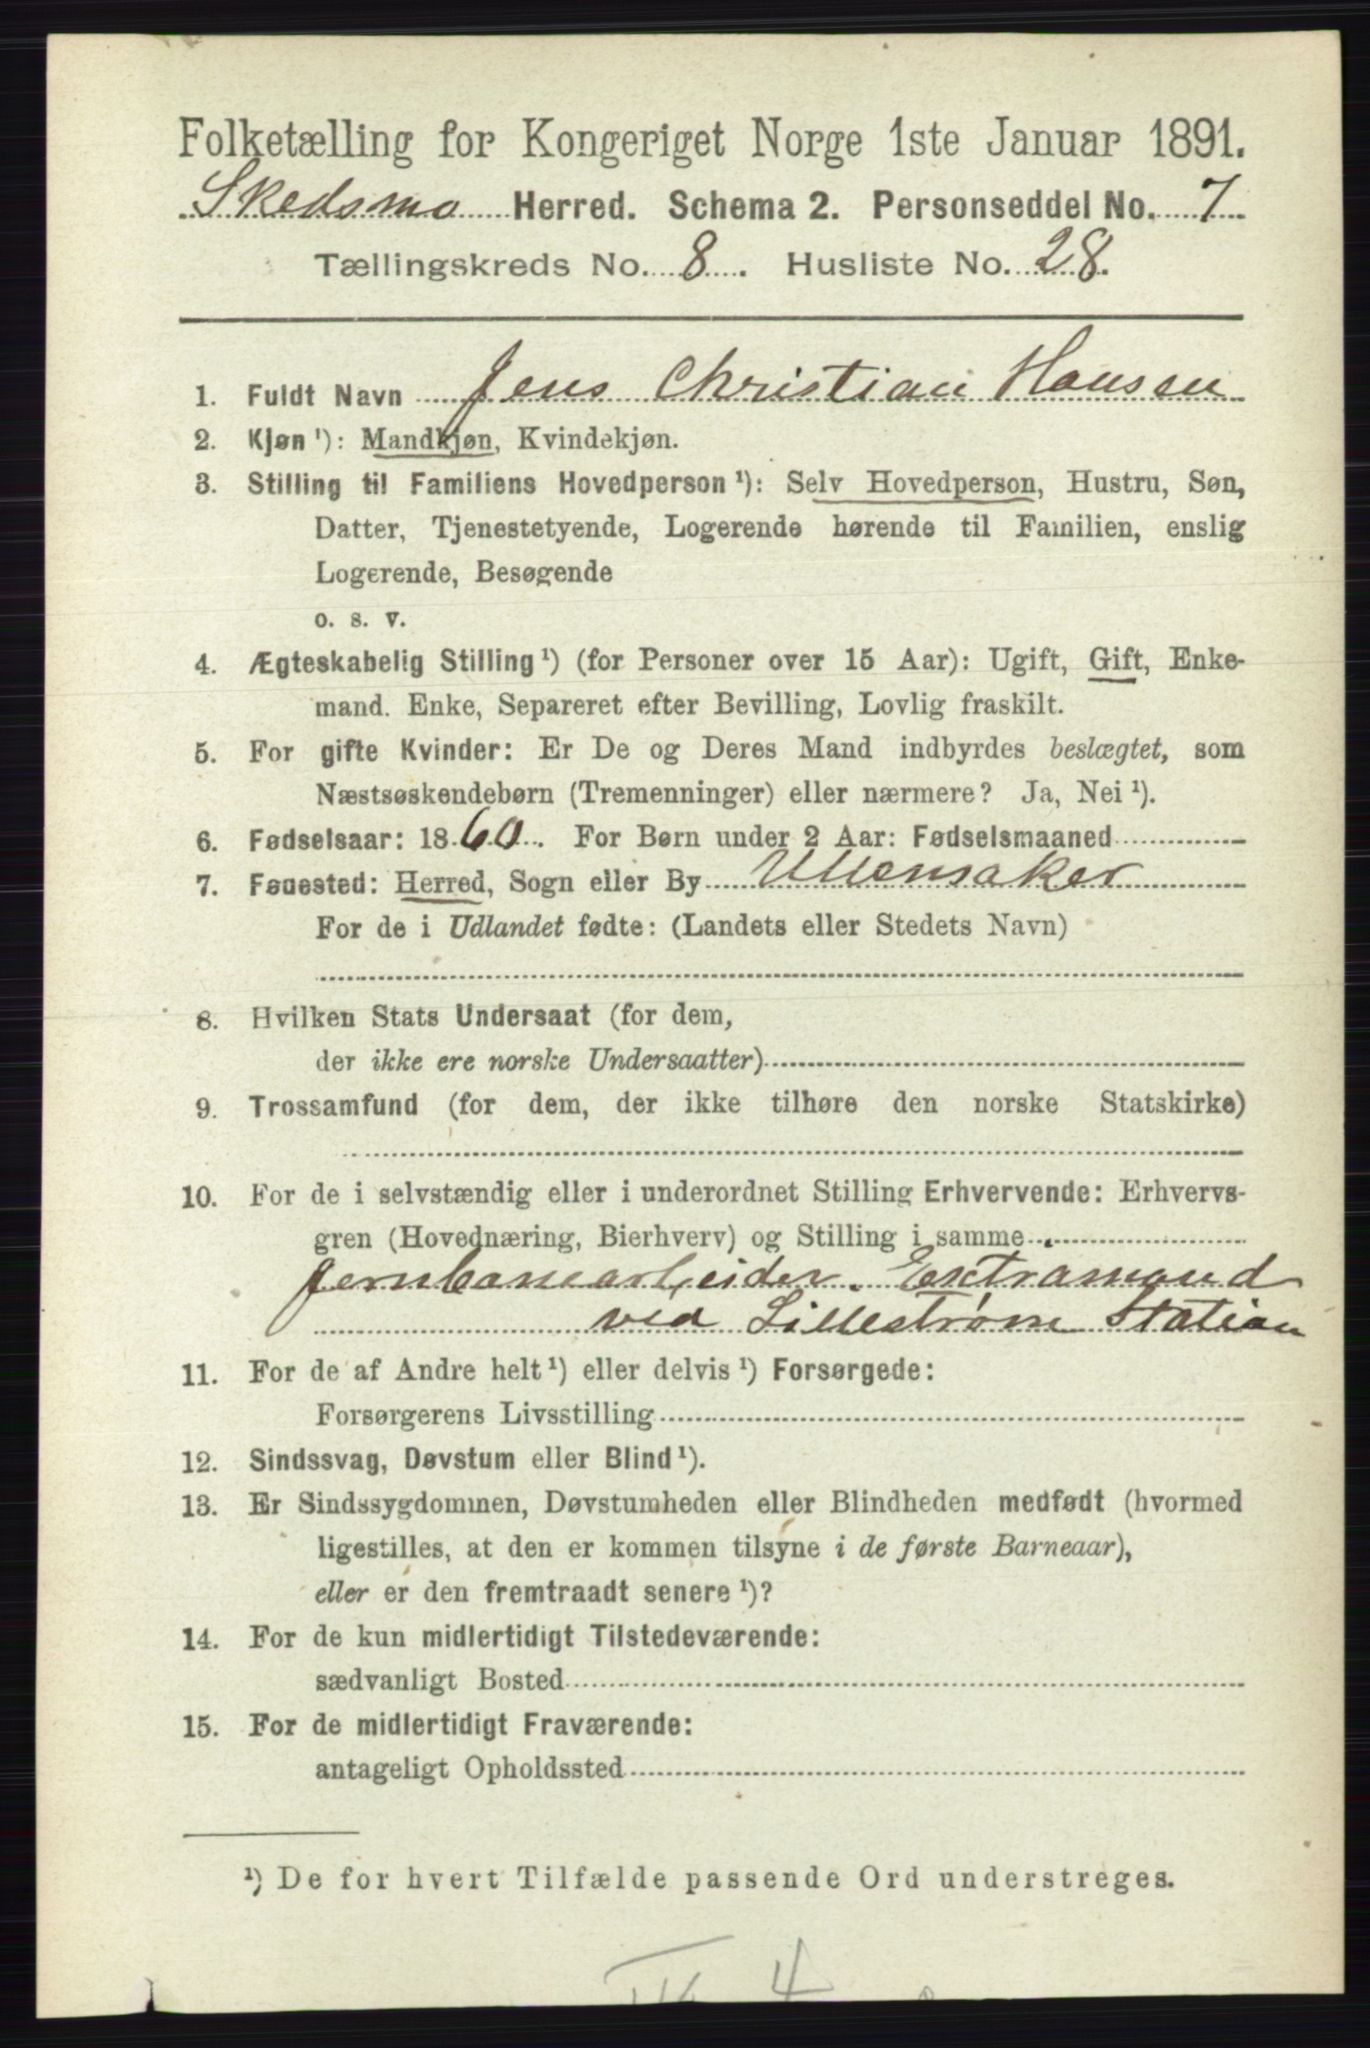 Folketælling for Kongeriget Norge 1ste Januar 1891.
Skedsmo Herred. Schema 2. Personseddel No. 7
Tællingskreds No. 8. Husliste No. 28.
1. Fuldt Navn Jens Christian Hansen
2. Kjøn ¹): Mandkjøn, Kvindekjøn.
3. Stilling til Familiens Hovedperson ¹): Selv Hovedperson, Hustru, Søn,
Datter, Tjenestetyende, Logerende hørende til Familien, enslig
Logerende, Besøgende
o. s. v.
4. Ægteskabelig Stilling ¹) (for Personer over 15 Aar): Ugift, Gift, Enke-
mand. Enke, Separeret efter Bevilling, Lovlig fraskilt.
5. For gifte Kvinder: Er De og Deres Mand indbyrdes beslægtet, som
Næstsøskendebørn (Tremenninger) eller nærmere? Ja, Nei ¹).
6. Fødselsaar: 1860. For Børn under 2 Aar: Fødselsmaaned
7. Føuested: Herred, Sogn eller By Ullensaker
For de i Udlandet fødte: (Landets eller Stedets Navn)
8. Hvilken Stats Undersaat (for dem,
der ikke ere norske Undersaatter)
9. Trossamfund (for dem, der ikke tilhøre den norske Statskirke)
10. For de i selvstændig eller i underordnet Stilling Erhvervende: Erhvervs-
gren (Hovednæring, Bierhverv) og Stilling i samme
Jernbanearbeider. Extramand
ved Lillestrøm Station
11. For de af Andre helt ¹) eller delvis ¹) Forsørgede:
Forsørgerens Livsstilling
12. Sindssvag, Døvstum eller Blind ¹).
13. Er Sindssygdommen, Døvstumheden eller Blindheden medfødt (hvormed
ligestilles, at den er kommen tilsyne i de første Barneaar),
eller er den fremtraadt senere ¹)?
14. For de kun midlertidigt Tilstedeværende:
sædvanligt Bosted
15. For de midlertidigt Fraværende:
antageligt Opholdssted
¹) De for hvert Tilfælde passende Ord understreges.
4